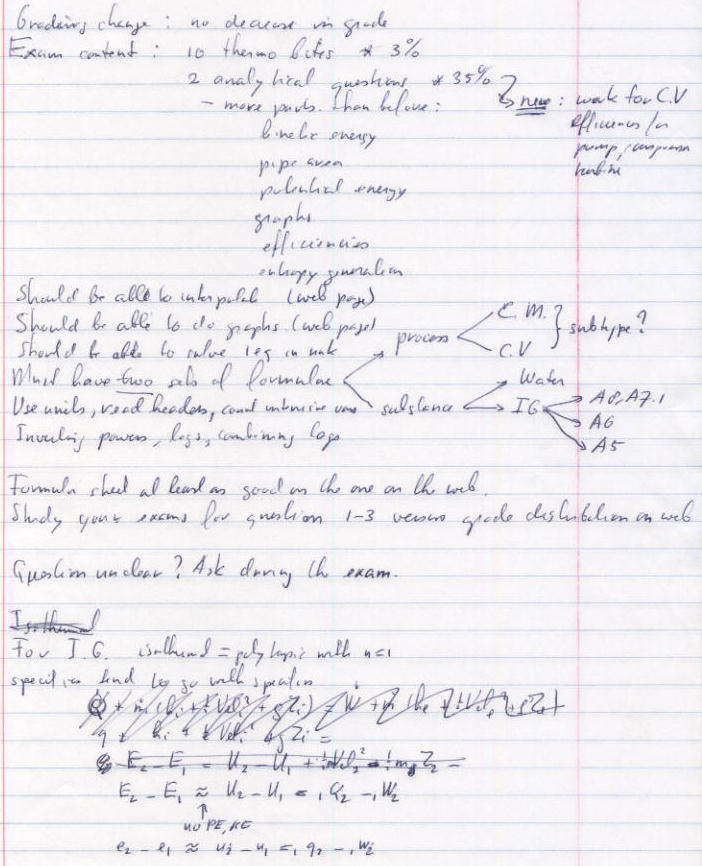 Grading change : no decrease in grade
Exam content : 10 thermo bites * 3%
2 analytical questions * 35%
new : work for C.V
efficiencies for
pump, compressor
turbine
- more parts than before :
kinetic energy
pipe area
potential energy
graphs
efficiencies
entropy generation
Should be able to interpolate (web page)
Should be able to do graphs (web page)
Should be able to solve leg in unk
Must have two sets of formulae
process
C.M.
C.V
subtype ?
Use units, read headers, count intensive vars
substance
Water
IG
A8, A7.1
A6
A5
Inverting powers, logs, combining logs
Formula sheet at least as good as the one on the web.
Study your exams for question 1-3 versus grade distribution on web
Question unclear ? Ask during the exam.
Isothermal
For I.G. isothermal = polytropic with n=1
specifics tend to go with specifics
E₂ - E₁ = U₂ - U₁
E₂ - E₁ ≈ U₂ - U₁ = ₁Q₂ - ₁W₂
no PE, KE
e₂ - e₁ ≈ u₂ - u₁ = ₁q₂ - ₁w₂